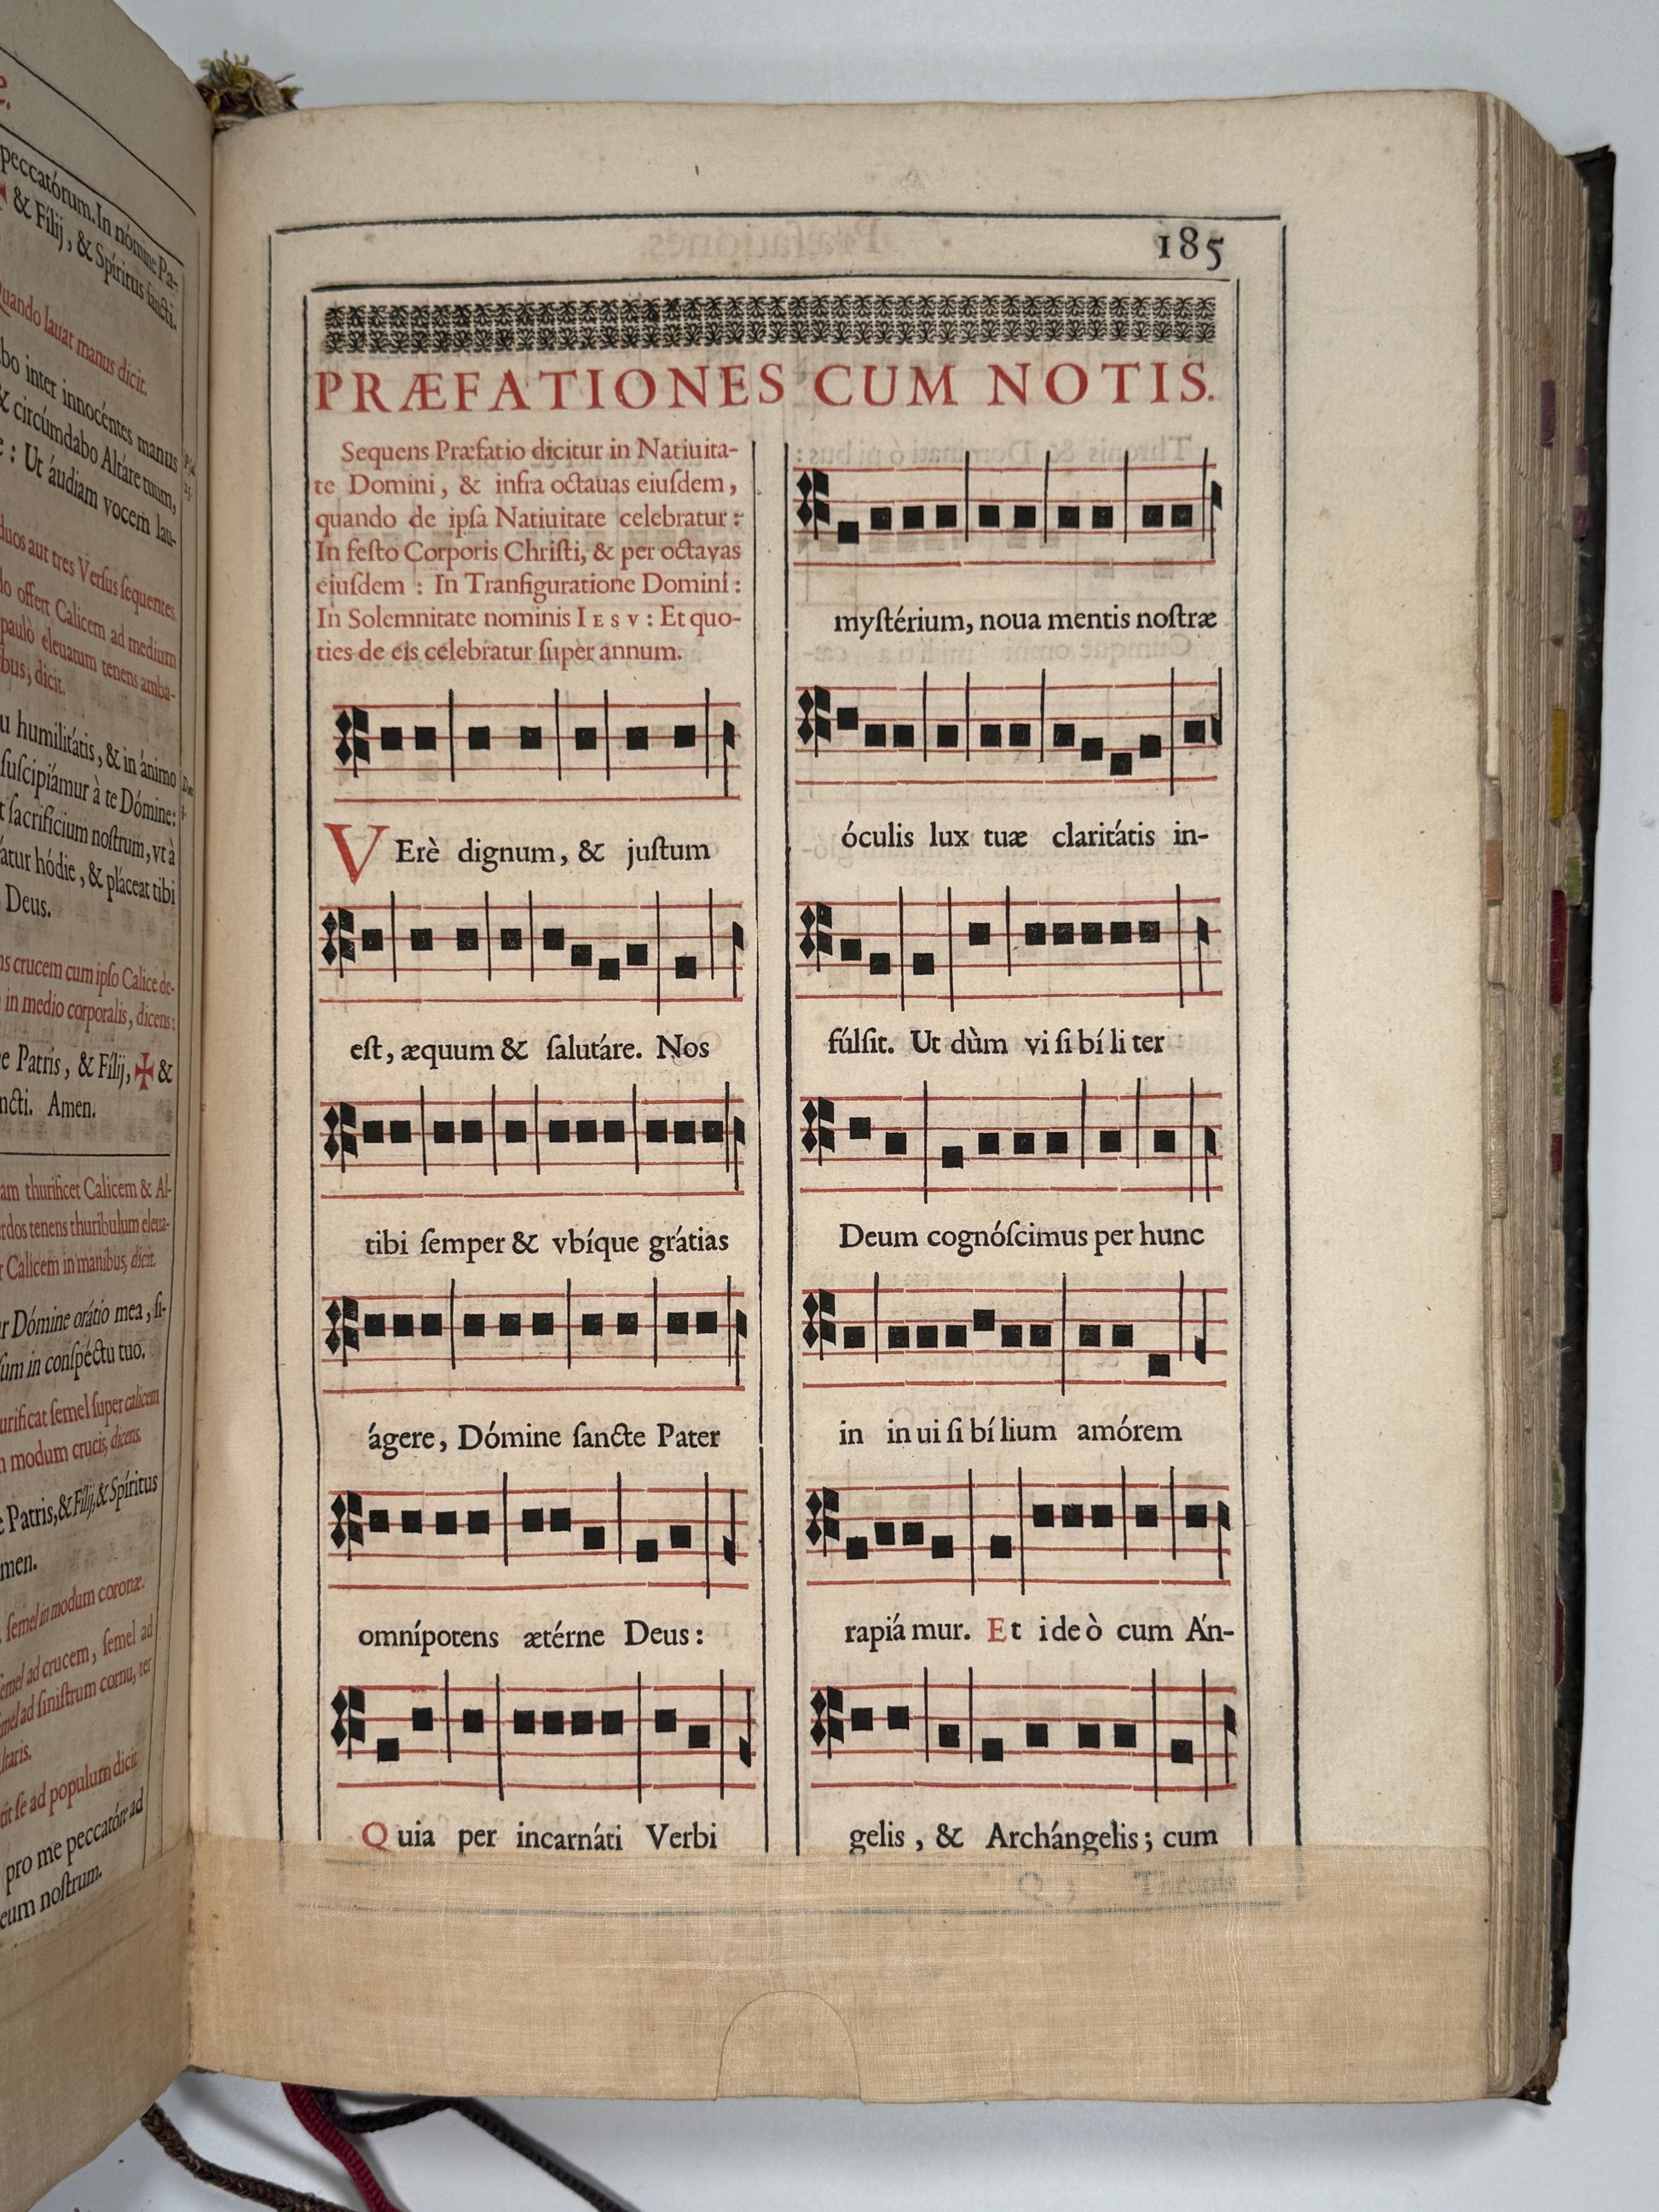 e.
peccatórum. In nómine Pa-
✠ & Fílij, & Spíritus sancti.
Quando lauat manus dicit.
bo inter innocéntes manus
& circúmdabo Altáre tuum,
: Ut áudiam vocem lau-
duos aut tres Versus sequentes.
do offert Calicem ad medium
paulò eleuatum tenens amba-
bus, dicit.
u humilitátis, & in ánimo
suscipiámur à te Dómine:
t sacrifícium nostrum, vt à
átur hódie, & pláceat tibi
Deus.
ns crucem cum ipso Calice de-
in medio corporalis, dicens:
e Patris, & Fílij, ✠ &
ncti. Amen.
am thurificet Calicem & Al-
rdos tenens thuribulum eleua-
r Calicem in manibus, dicit.
ur Dómine orátio mea, si-
sum in conspéctu tuo.
urificat semel super calicem
n modum crucis, dicens.
e Patris, & Fílij, & Spíritus
men.
semel in modum coronæ.
semel ad crucem, semel ad
mel ad sinistrum cornu, ter
ltaris.
rit se ad populum dicit
pro me peccatóre ad
eum nostrum.
185
PRÆFATIONES CUM NOTIS.
Sequens Præfatio dicitur in Natiuita-
te Domini, & infra octauas eiuſdem,
quando de ipſa Natiuitate celebratur:
In feſto Corporis Chriſti, & per octavas
eiuſdem : In Tranſfiguratione Domini:
In Solemnitate nominis IESV: Et quo-
ties de eis celebratur ſuper annum.
VErè dignum, & juſtum
eſt, æquum & ſalutáre. Nos
tibi ſemper & vbíque grátias
ágere, Dómine ſancte Pater
omnípotens ætérne Deus:
Quia per incarnáti Verbi
myſtérium, noua mentis noſtræ
óculis lux tuæ claritátis in-
fúlſit. Ut dùm vi ſi bí li ter
Deum cognóſcimus per hunc
in in ui ſi bí lium amórem
rapiá mur. Et ideò cum Án-
gelis, & Archángelis; cum
Thronis